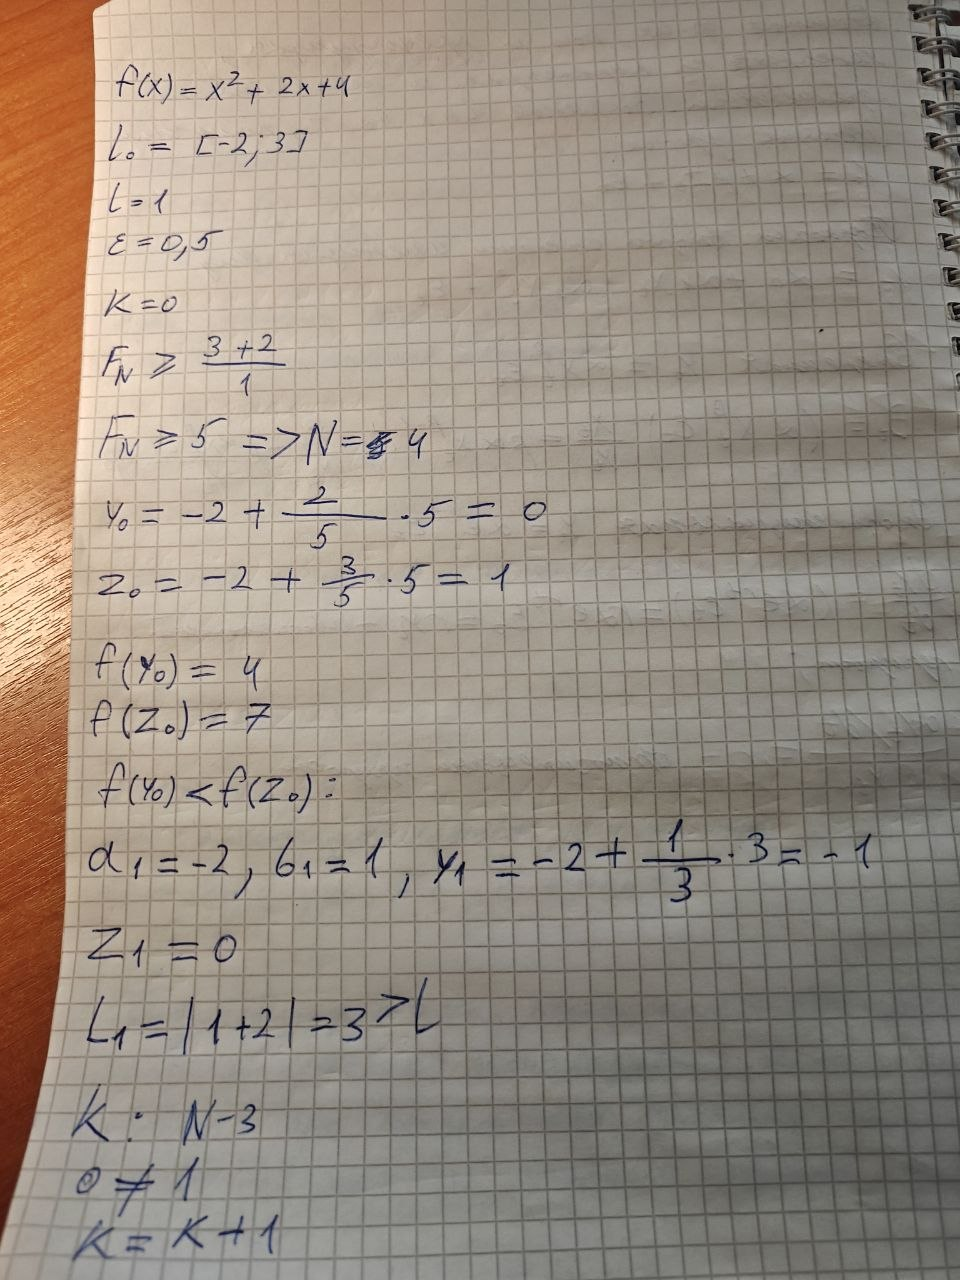 f(x) = x² + 2x + 4
L₀ = [-2; 3]
l = 1
ε = 0,5
K = 0
F_N ≥ (3 + 2)/1
F_N ≥ 5 => N = 4
y₀ = -2 + 2/5 · 5 = 0
z₀ = -2 + 3/5 · 5 = 1
f(y₀) = 4
f(z₀) = 7
f(y₀) < f(z₀):
a₁ = -2, b₁ = 1, y₁ = -2 + 1/3 · 3 = -1
z₁ = 0
L₁ = |1+2| = 3 > l
K: N-3
0 ≠ 1
K = K + 1